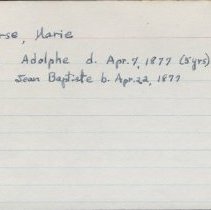 rse, Marie
Adolphe d. Apr. 7, 1877 (5yrs)
Jean Baptiste b. Apr. 22, 1877